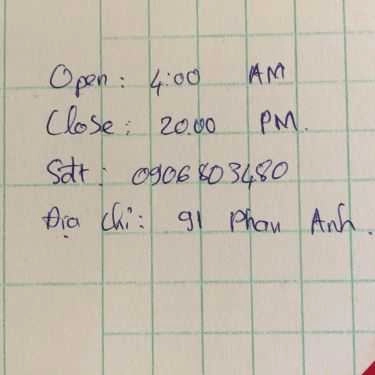 Open: 4:00 AM
Close: 20.00 PM.
Sđt: 0906803480
Địa chỉ: 91 Phan Anh.